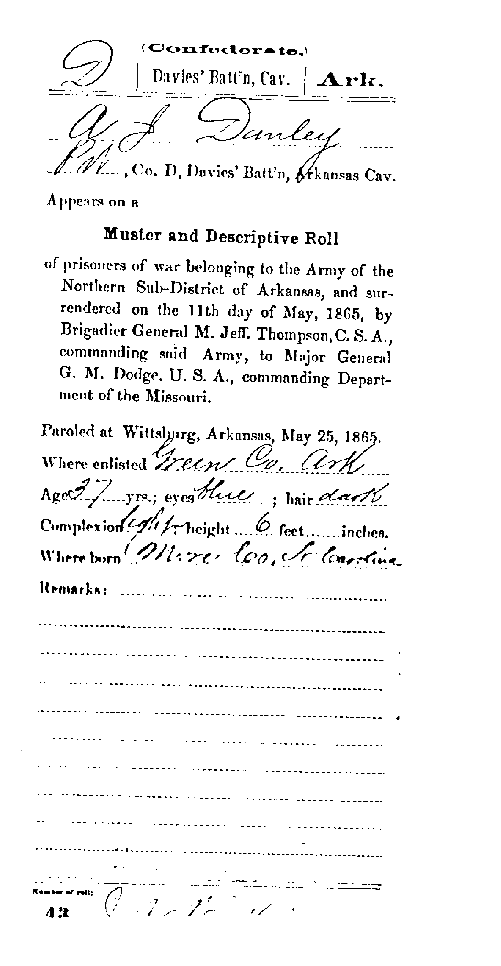 (Confederate.)
D Davies' Batt'n, Cav. Ark.
A J Danley
Pvt, Co. D, Davies' Batt'n, Arkansas Cav.
Appears on a
Muster and Descriptive Roll
of prisoners of war belonging to the Army of the
Northern Sub-District of Arkansas, and sur-
rendered on the 11th day of May, 1865, by
Brigadier General M. Jeff. Thompson, C. S. A.,
commanding said Army, to Major General
G. M. Dodge, U. S. A., commanding Depart-
ment of the Missouri.
Paroled at Wittsburg, Arkansas, May 25, 1865.
Where enlisted Green Co. Ark
Age 37 yrs.; eyes blue ; hair dark
Complexion light height 6 feet inches.
Where born More Co, N Carolina
Remarks:
Number of roll:
43